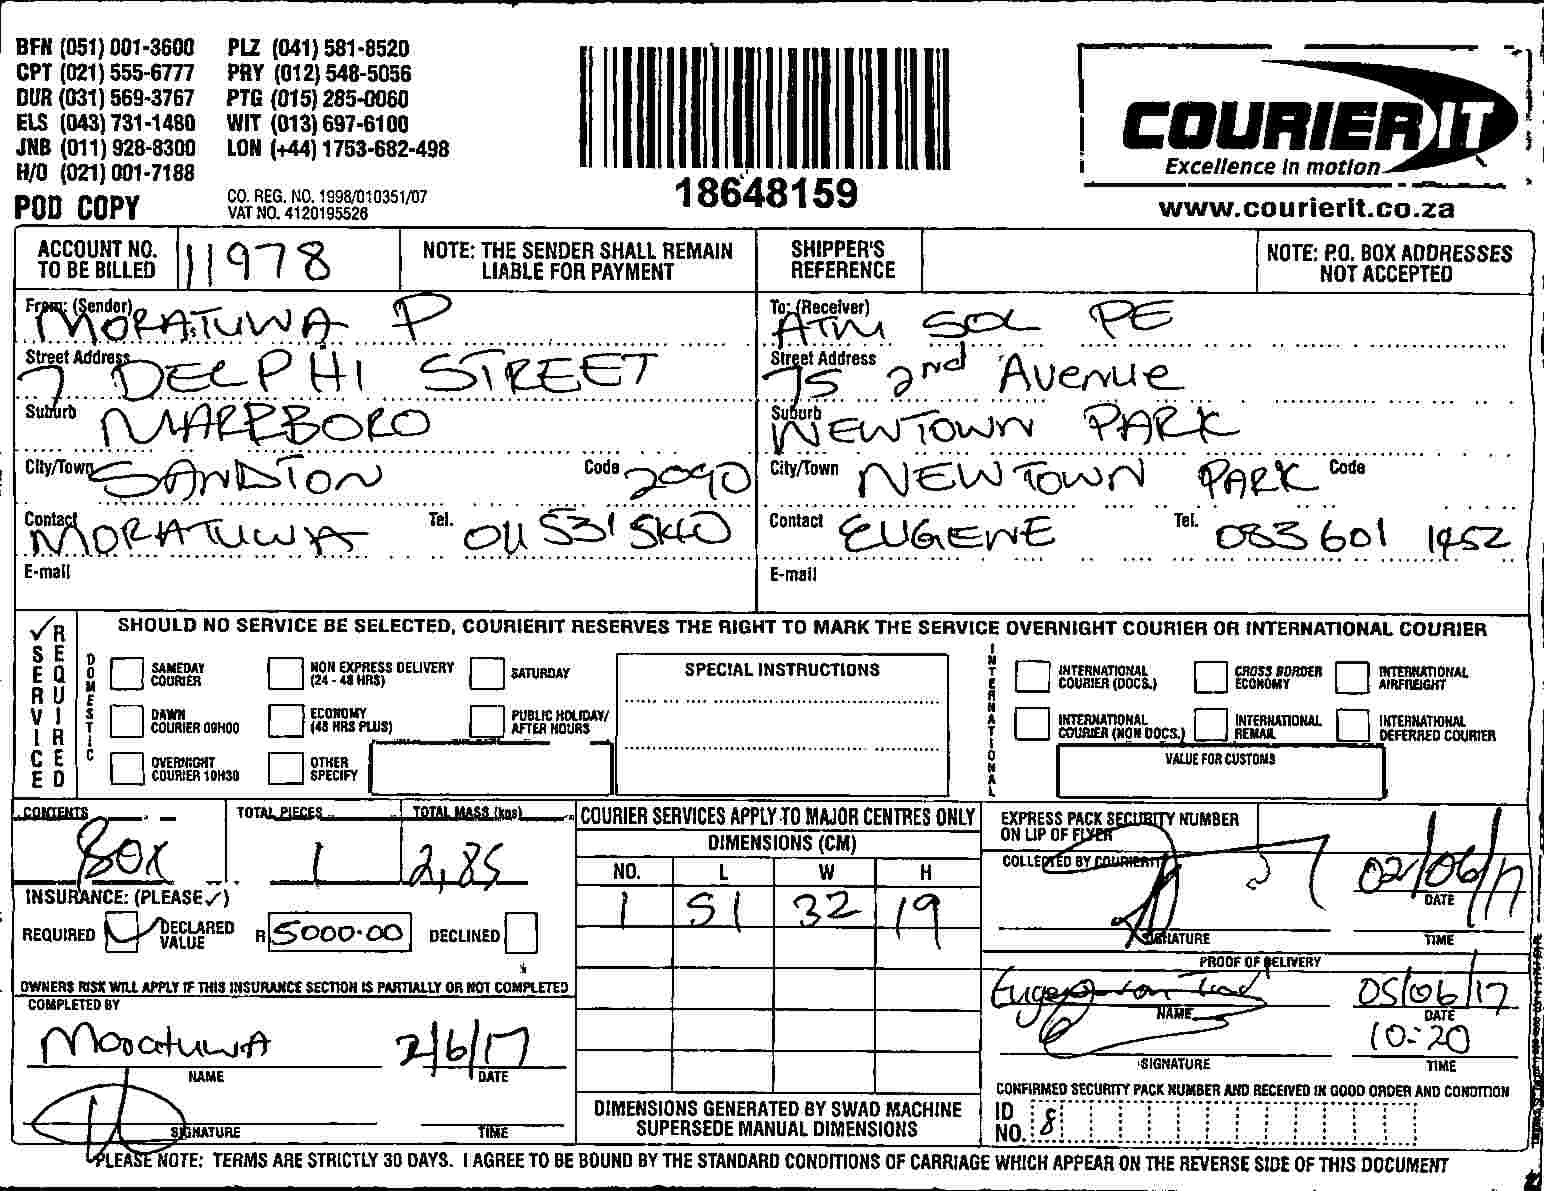 BFN (051) 001-3600 PLZ (041) 581-8520
CPT (021) 555-6777 PRY (012) 548-5056
DUR (031) 569-3767 PTG (015) 285-0060
ELS (043) 731-1480 WIT (013) 697-6100
JNB (011) 928-8300 LON (+44) 1753-682-498
H/O (021) 001-7188
POD COPY
CO. REG. NO. 1998/010351/07
VAT NO. 4120195526
18648159
COURIERIT
Excellence in motion
www.courierit.co.za
ACCOUNT NO. TO BE BILLED 11978
NOTE: THE SENDER SHALL REMAIN LIABLE FOR PAYMENT
SHIPPER'S REFERENCE
NOTE: P.O. BOX ADDRESSES NOT ACCEPTED
From: (Sender) MORATUWA P
Street Address 7 DELPHI STREET
Suburb MARLBORO
City/Town SANDTON Code 2090
Contact MORATUWA Tel. 011 531
E-mail
To: (Receiver) ATM SOL PE
Street Address 75 2nd Avenue
Suburb NEWTOWN PARK
City/Town NEWTOWN PARK Code
Contact EUGENE Tel. 083 601 1452
E-mail
✓ SERVICE REQUIRED
SHOULD NO SERVICE BE SELECTED, COURIERIT RESERVES THE RIGHT TO MARK THE SERVICE OVERNIGHT COURIER OR INTERNATIONAL COURIER
DOMESTIC
SAMEDAY COURIER
NON EXPRESS DELIVERY (24 - 48 HRS)
SATURDAY
DAWN COURIER 09H00
ECONOMY (48 HRS PLUS)
PUBLIC HOLIDAY/ AFTER HOURS
OVERNIGHT COURIER 10H30
OTHER SPECIFY
SPECIAL INSTRUCTIONS
INTERNATIONAL
INTERNATIONAL COURIER (DOCS.)
CROSS BORDER ECONOMY
INTERNATIONAL AIRFREIGHT
INTERNATIONAL COURIER (NON DOCS.)
INTERNATIONAL REMAIL
INTERNATIONAL DEFERRED COURIER
VALUE FOR CUSTOMS
CONTENTS BOX
TOTAL PIECES 1
TOTAL MASS (kgs) 2,85
INSURANCE: (PLEASE ✓)
REQUIRED ✓ DECLARED VALUE R 5000.00 DECLINED
OWNERS RISK WILL APPLY IF THIS INSURANCE SECTION IS PARTIALLY OR NOT COMPLETED
COMPLETED BY
Moratuwa 2/6/17
NAME DATE
SIGNATURE TIME
COURIER SERVICES APPLY TO MAJOR CENTRES ONLY
DIMENSIONS (CM)
NO. L W H
1 51 32 19
DIMENSIONS GENERATED BY SWAD MACHINE
SUPERSEDE MANUAL DIMENSIONS
EXPRESS PACK SECURITY NUMBER
ON LIP OF FLYER
COLLECTED BY COURIERIT
02/06/17
DATE
SIGNATURE TIME
PROOF OF DELIVERY
05/06/17
NAME DATE
10:20
SIGNATURE TIME
CONFIRMED SECURITY PACK NUMBER AND RECEIVED IN GOOD ORDER AND CONDITION
ID NO. 8
PLEASE NOTE: TERMS ARE STRICTLY 30 DAYS. I AGREE TO BE BOUND BY THE STANDARD CONDITIONS OF CARRIAGE WHICH APPEAR ON THE REVERSE SIDE OF THIS DOCUMENT